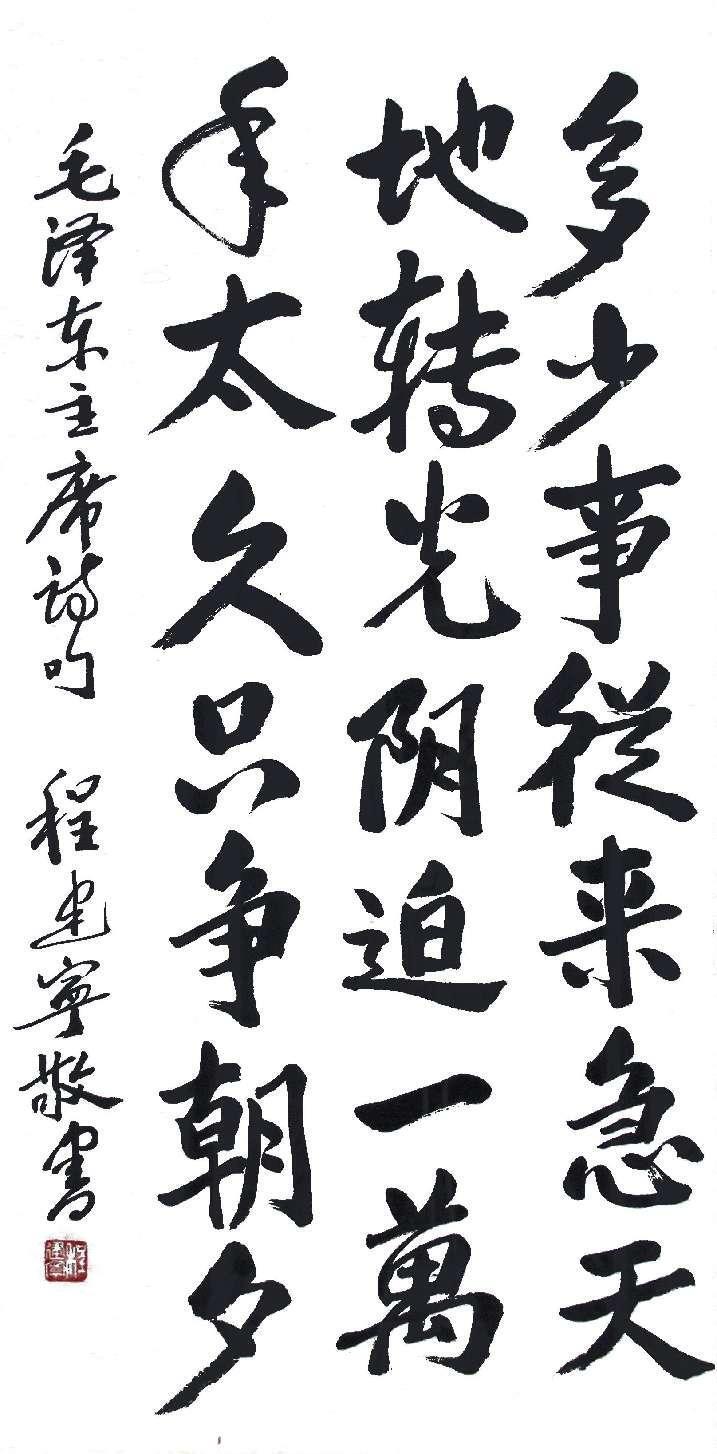 多少事從来急天
地转光阴迫一萬
年太久只争朝夕
毛泽东主席诗句 程建寧敬书